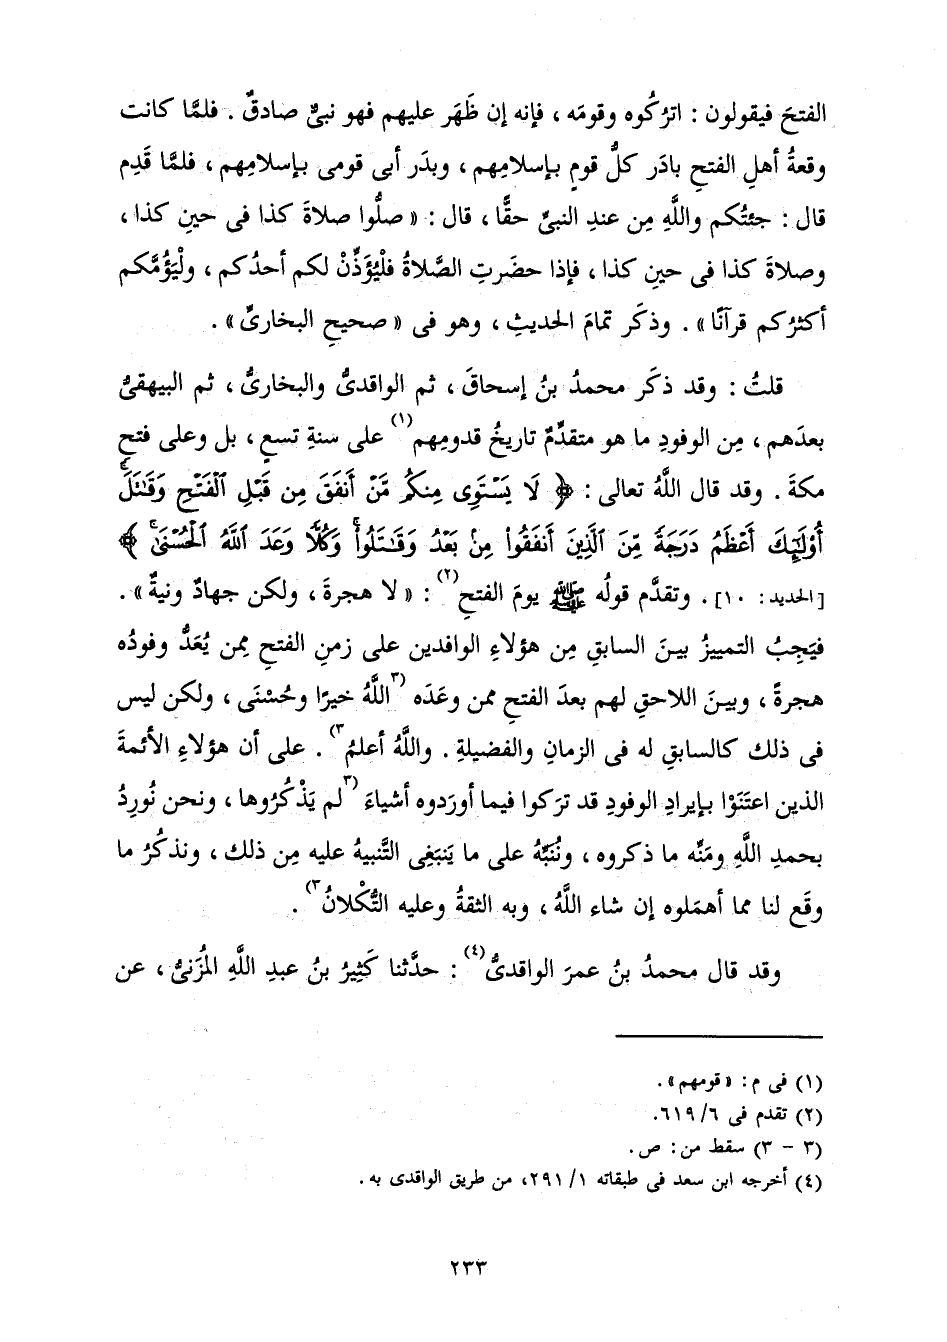 الفتحَ فيقولون : اترُكُوه وقومَه ، فإنه إن ظَهَر عليهم فهو نبىٌّ صادقٌ . فلمَّا كانت
وقعةُ أهلِ الفتحِ بادَر كلُّ قومٍ بإسلامِهم ، وبدَر أبى قومى بإسلامِهم ، فلمَّا قَدِم
قال : جئتُكم واللَّهِ مِن عندِ النبىِّ حقًّا ، قال : « صلُّوا صلاةَ كذا فى حينِ كذا ،
وصلاةَ كذا فى حينِ كذا ، فإذا حضَرتِ الصَّلاةُ فلْيُؤَذِّنْ لكم أحدُكم ، ولْيَؤُمَّكم
أكثرُكم قرآنًا » . وذكَر تمامَ الحديثِ ، وهو فى « صحيحِ البخارىِّ » .
قلتُ : وقد ذكَر محمدُ بنُ إسحاقَ ، ثم الواقدىُّ والبخارىُّ ، ثم البيهقىُّ
بعدَهم ، مِن الوفودِ ما هو متقدِّمٌ تاريخُ قدومِهم(١) على سنةِ تسعٍ ، بل وعلى فتحِ
مكةَ . وقد قال اللَّهُ تعالى : ﴿ لَا يَسْتَوِى مِنكُم مَّنْ أَنفَقَ مِن قَبْلِ ٱلْفَتْحِ وَقَٰتَلَۚ
أُو۟لَٰٓئِكَ أَعْظَمُ دَرَجَةً مِّنَ ٱلَّذِينَ أَنفَقُوا۟ مِنۢ بَعْدُ وَقَٰتَلُوا۟ۚ وَكُلًّا وَعَدَ ٱللَّهُ ٱلْحُسْنَىٰۚ ﴾
[الحديد: ١٠] . وتقدَّم قولُه ﷺ يومَ الفتحِ(٢) : « لا هجرةَ ، ولكن جهادٌ ونيةٌ » .
فيَجِبُ التمييزُ بينَ السابقِ مِن هؤلاءِ الوافدين على زمنِ الفتحِ ممن يُعَدُّ وفودُه
هجرةً ، وبينَ اللاحقِ لهم بعدَ الفتحِ ممن وعَدَه (٣اللَّهُ خيرًا وحُسْنَى ، ولكن ليس
فى ذلك كالسابقِ له فى الزمانِ والفضيلةِ . واللَّهُ أعلمُ٣) . على أن هؤلاءِ الأئمةَ
الذين اعتَنَوْا بإيرادِ الوفودِ قد ترَكوا فيما أورَدوه أشياءَ (٣لم يَذْكُرُوها ، ونحن نُورِدُ
بحمدِ اللَّهِ ومَنِّه ما ذكروه ، ونُنَبِّهُ على ما يَنبَغِى التَّنبيهُ عليه مِن ذلك ، ونذكُرُ ما
وقَع لنا مما أهمَلوه إن شاء اللَّهُ ، وبه الثقةُ وعليه التُّكْلانُ٣) .
وقد قال محمدُ بنُ عمرَ الواقدىُّ(٤) : حدَّثنا كَثِيرُ بنُ عبدِ اللَّهِ المُزَنىُّ ، عن
(١) فى م : « قومهم » .
(٢) تقدم فى ٦/ ٦١٩.
(٣ - ٣) سقط من : ص .
(٤) أخرجه ابن سعد فى طبقاته ١/ ٢٩١، من طريق الواقدى به .
٢٣٣